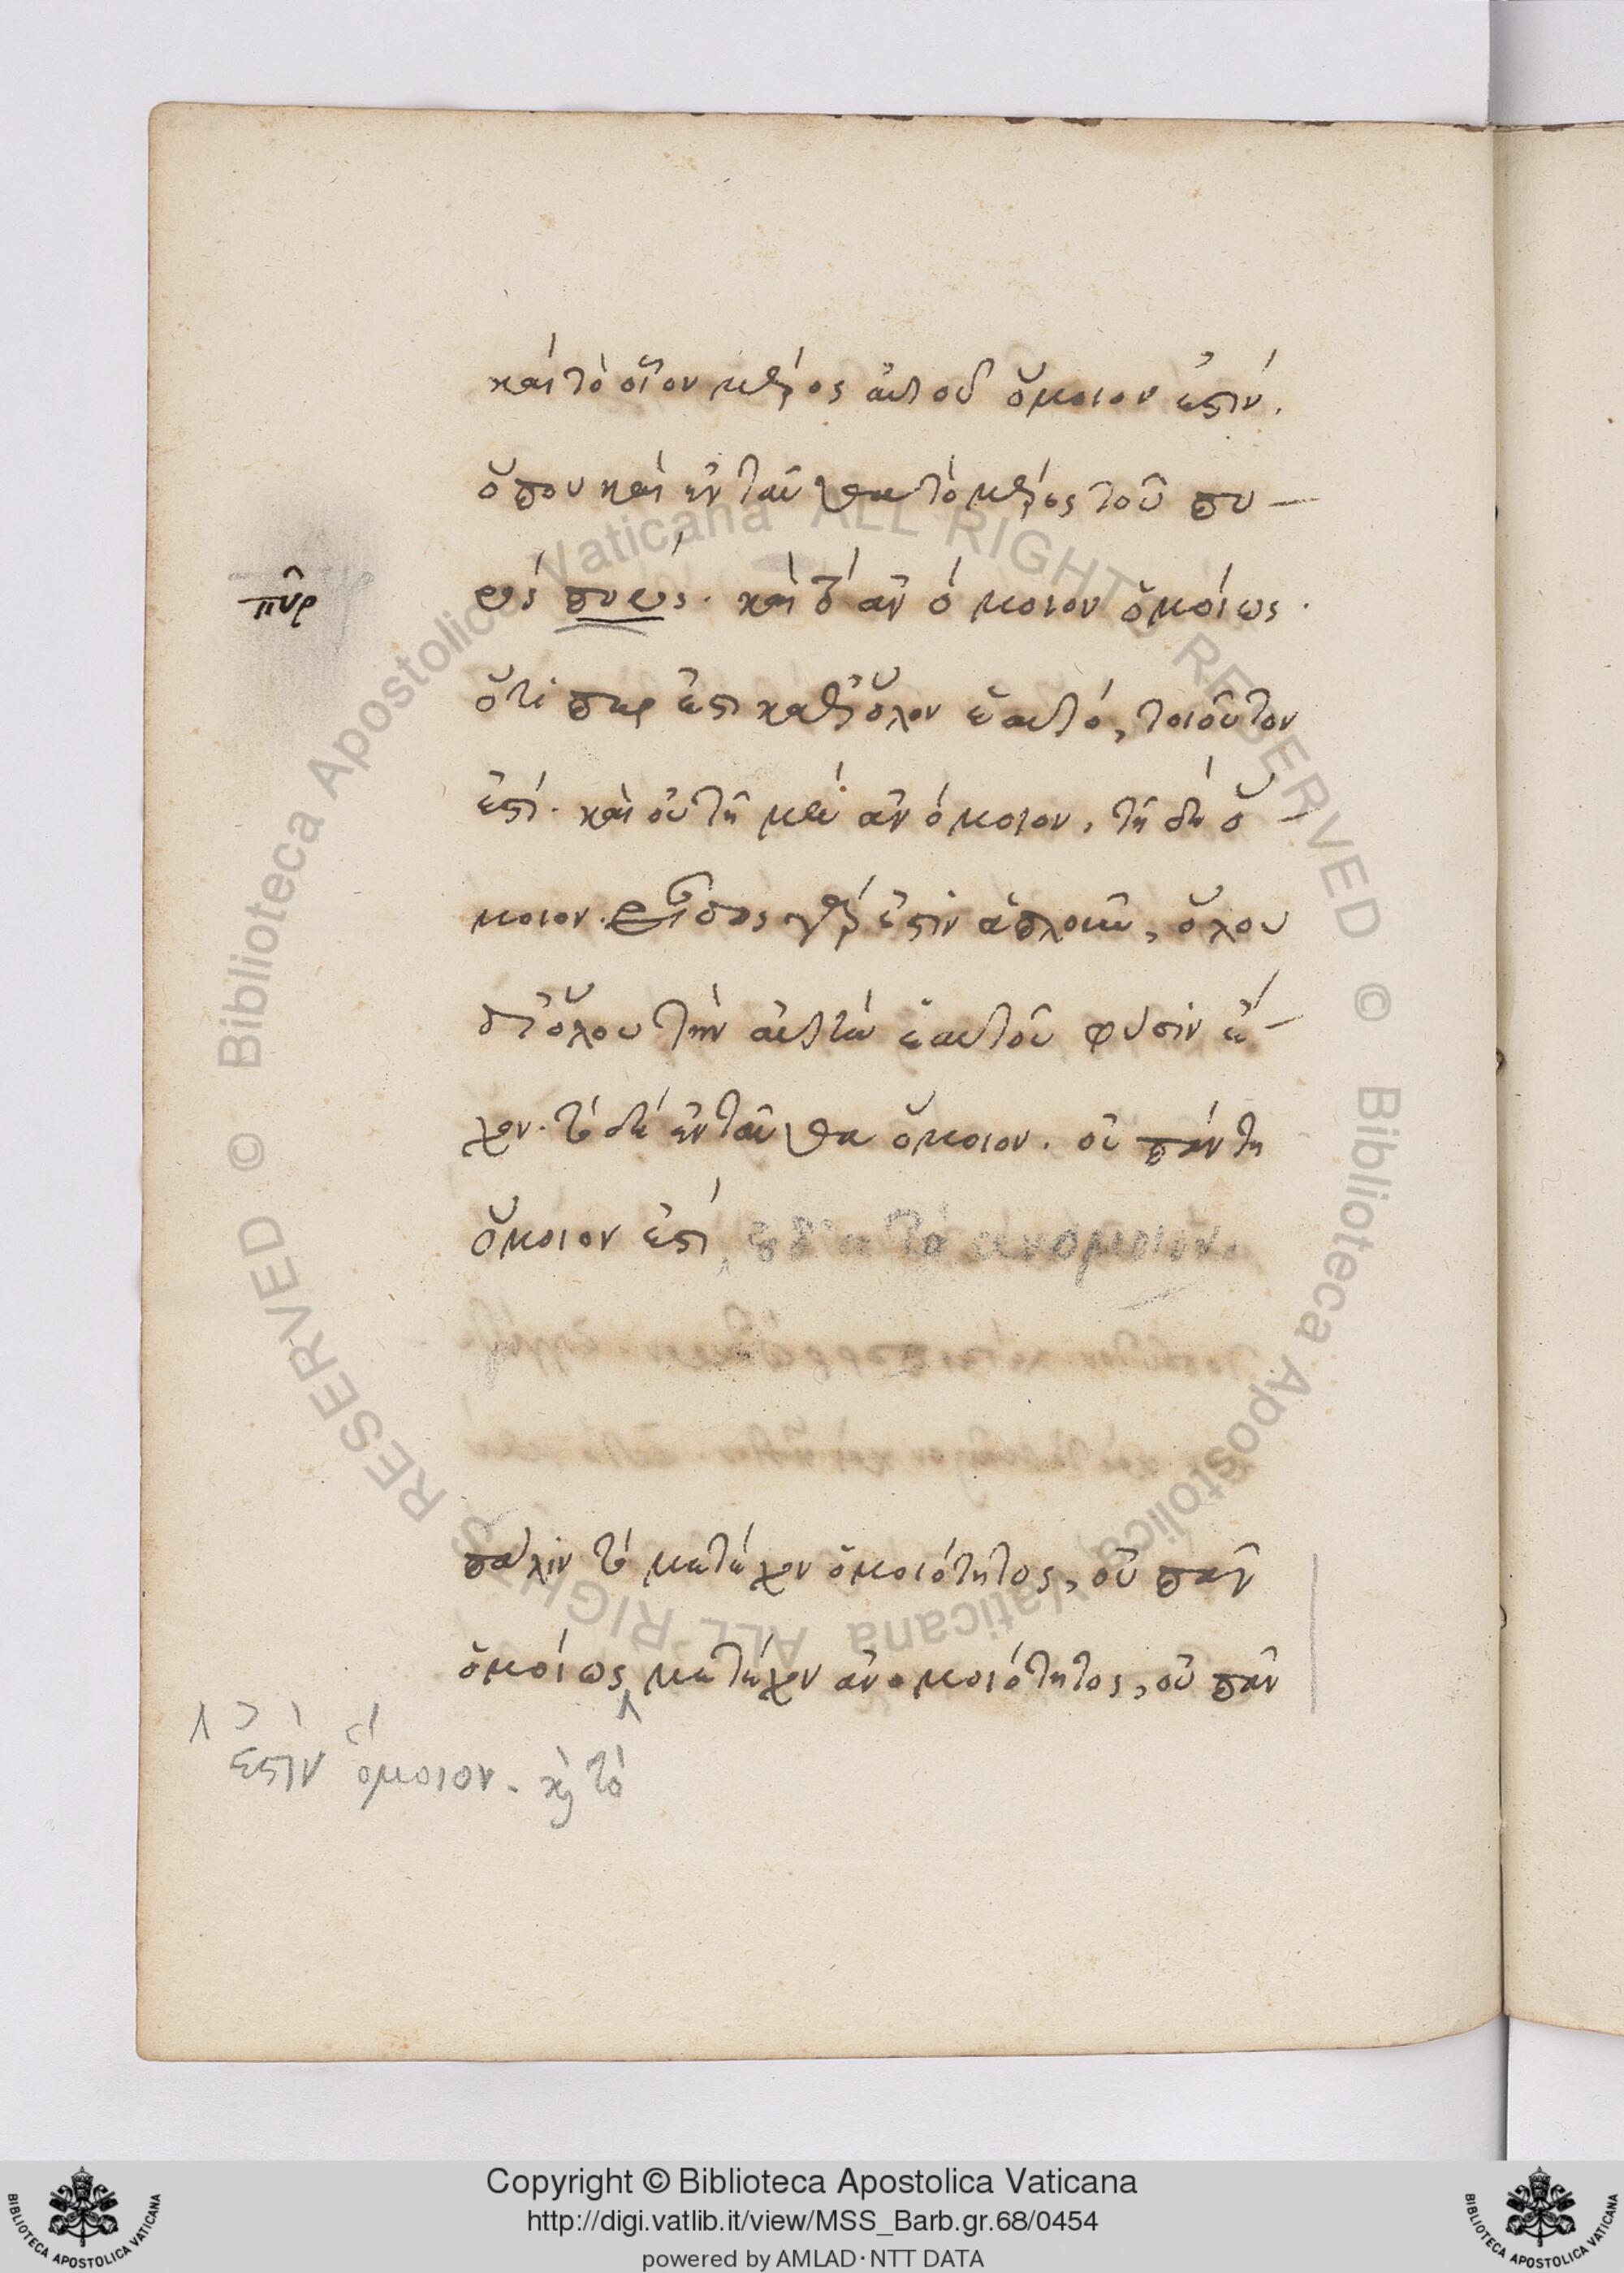 καὶ τὸ οἷον μέρος αὐτοῦ ὅμοιον ἐστίν.
ὅπου καὶ ἐνταῦθα τὸ μέρος τοῦ πυ-
ρὸς πυρός. καὶ τὸ ἀνόμοιον ὁμοίως.
πῦρ
ὅτι περ ἐστι καθ' ὅλον ἑαυτό, τοιοῦτον
ἐστί. καὶ οὐ τῇ μὲν ἀνόμοιον, τῇ δὲ ὅ-
μοιον. εἶδος γάρ ἐστιν ἁπλοῦν, ὅλου
δι' ὅλου τὴν αὐτὴν ἑαυτοῦ φύσιν ἔ-
χον. τὸ δὲ ἐνταῦθα ὅμοιον. οὐ πάντη
ὅμοιον ἐστί, τὸ ἀνόμοιον.
πάλιν τὸ μετέχον ὁμοιότητος, οὐ πᾶν
ὁμοίως μετέχον ἀνομοιότητος, οὐ πᾶν
ἐστὶν ὅμοιον. κὴ τὸ
Copyright © Biblioteca Apostolica Vaticana
http://digi.vatlib.it/view/MSS_Barb.gr.68/0454
powered by AMLAD·NTT DATA
BIBLIOTECA APOSTOLICA VATICANA
BIBLIOTECA APOSTOLICA VATICANA
© Biblioteca Apostolica Vaticana ALL RIGHTS RESERVED
© Biblioteca Apostolica Vaticana ALL RIGHTS RESERVED